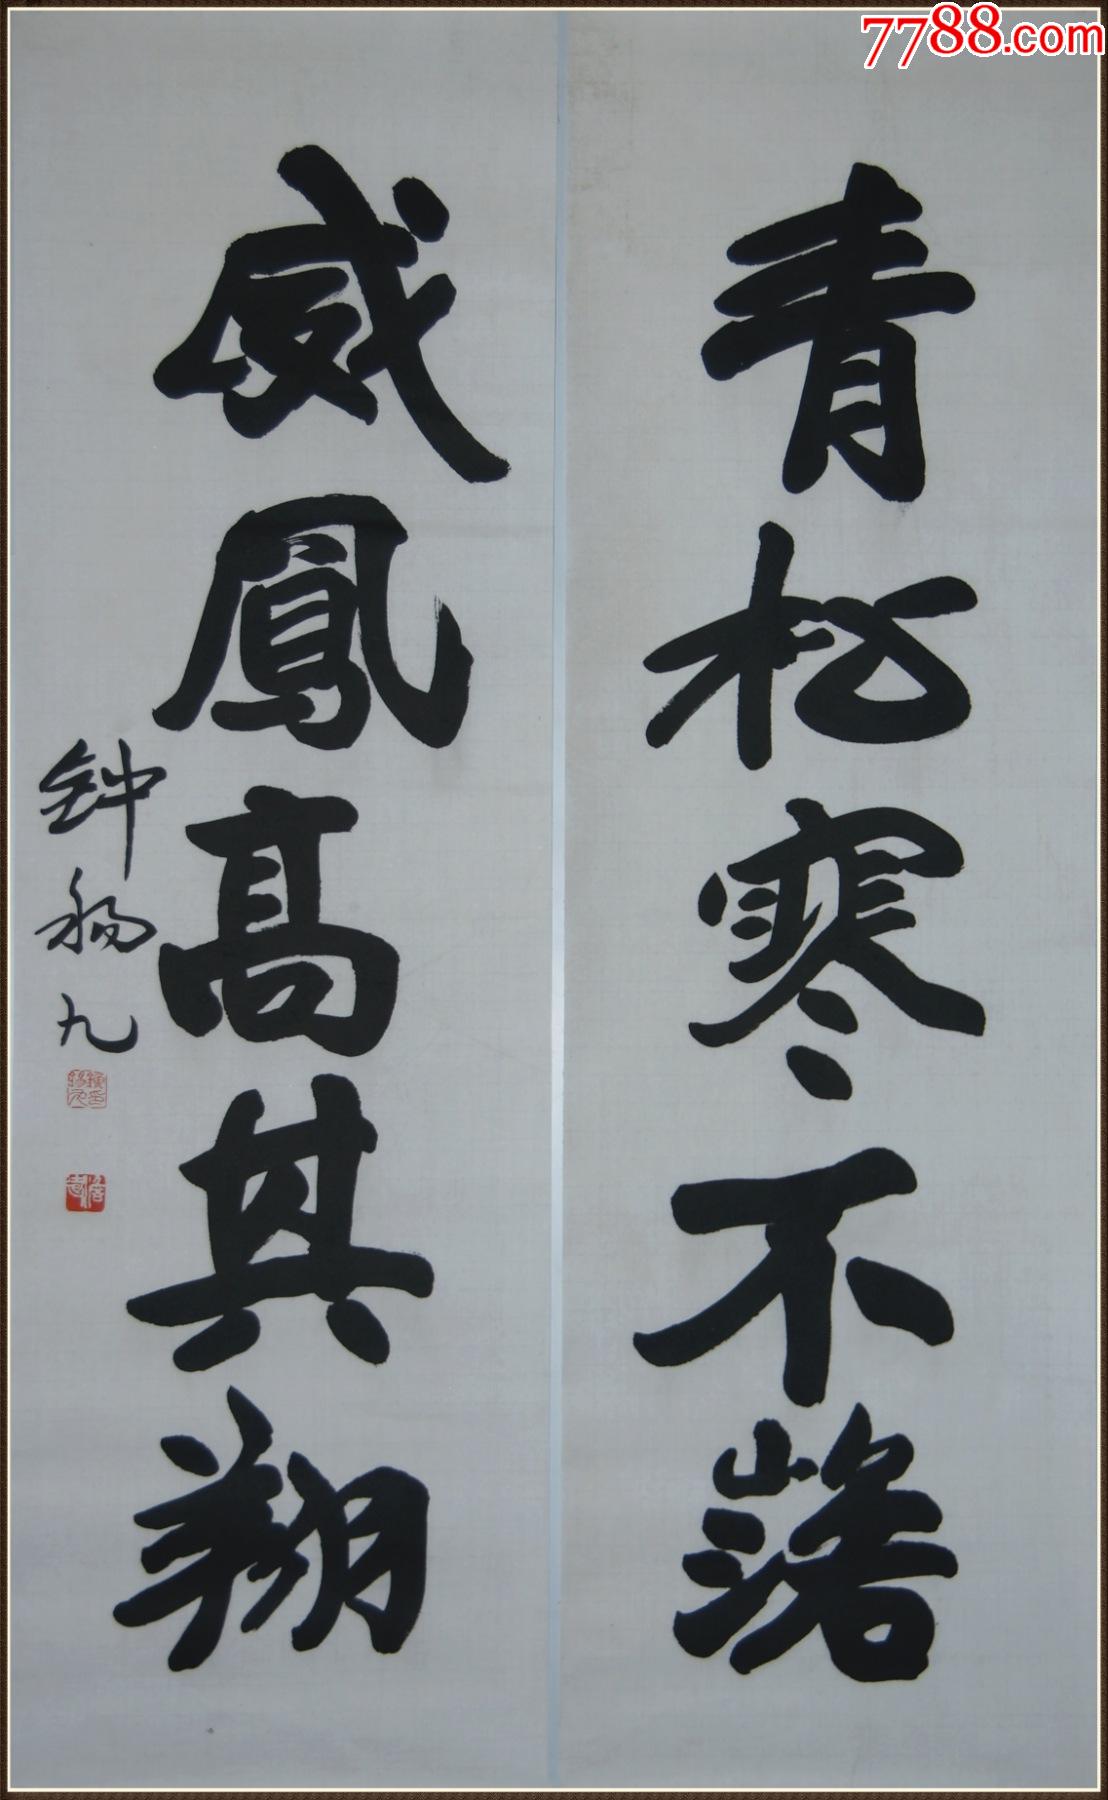 7788.com
青松寒不落
威鳳高其翔